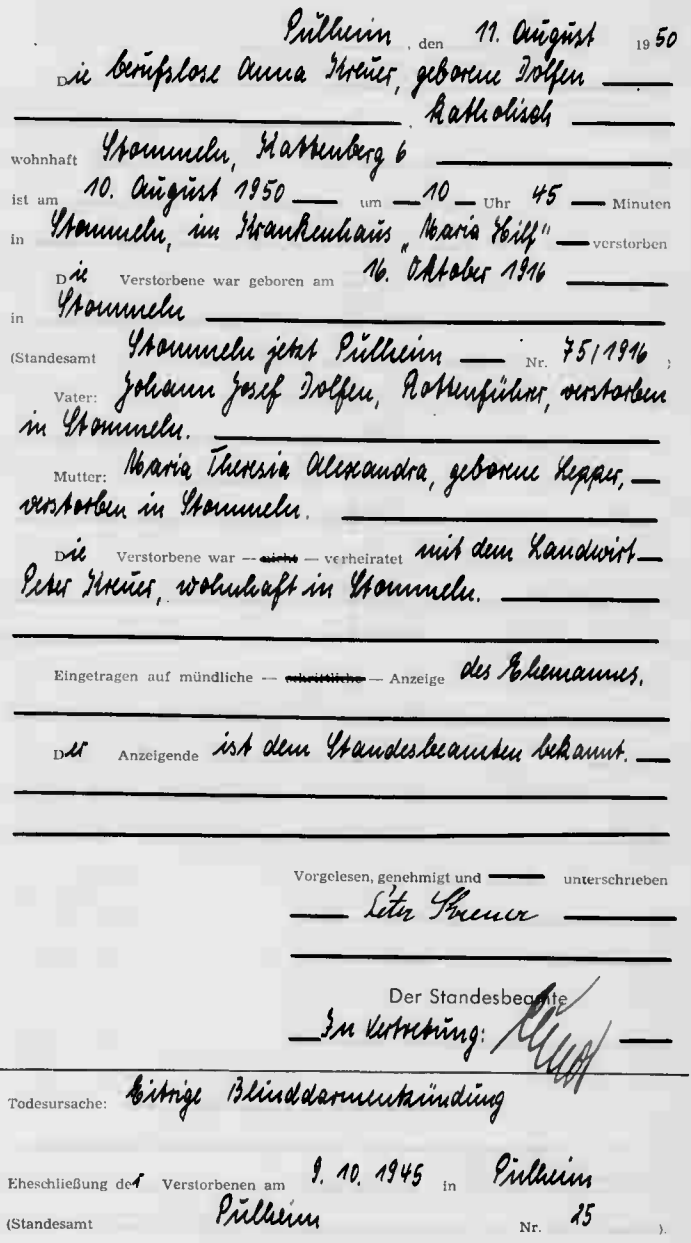 Pulheim, den 11. August 1950
Die berufslose Anna Kreuer, geborene Dolfen
, katholisch
wohnhaft Stommeln, Nattenberg 6
ist am 10. August 1950 um 10 Uhr 45 Minuten
in Stommeln, im Krankenhaus „Maria Hilf" verstorben
Die Verstorbene war geboren am 16. Oktober 1916
in Stommeln
(Standesamt Stommeln jetzt Pulheim Nr. 75/1916 )
Vater: Johann Josef Dolfen, Rottenführer, verstorben
in Stommeln.
Mutter: Maria Theresia Alexandra, geborene Lepper,
verstorben in Stommeln.
Die Verstorbene war — nicht — verheiratet mit dem Landwirt
Peter Kreuer, wohnhaft in Stommeln.
Eingetragen auf mündliche — schriftliche — Anzeige des Ehemannes.
Der Anzeigende ist dem Standesbeamten bekannt.
Vorgelesen, genehmigt und unterschrieben
Peter Kreuer
Der Standesbeamte
In Vertretung:
Todesursache: Eitrige Blinddarmentzündung
Eheschließung der Verstorbenen am 9. 10. 1945 in Pulheim
(Standesamt Pulheim Nr. 25 ).